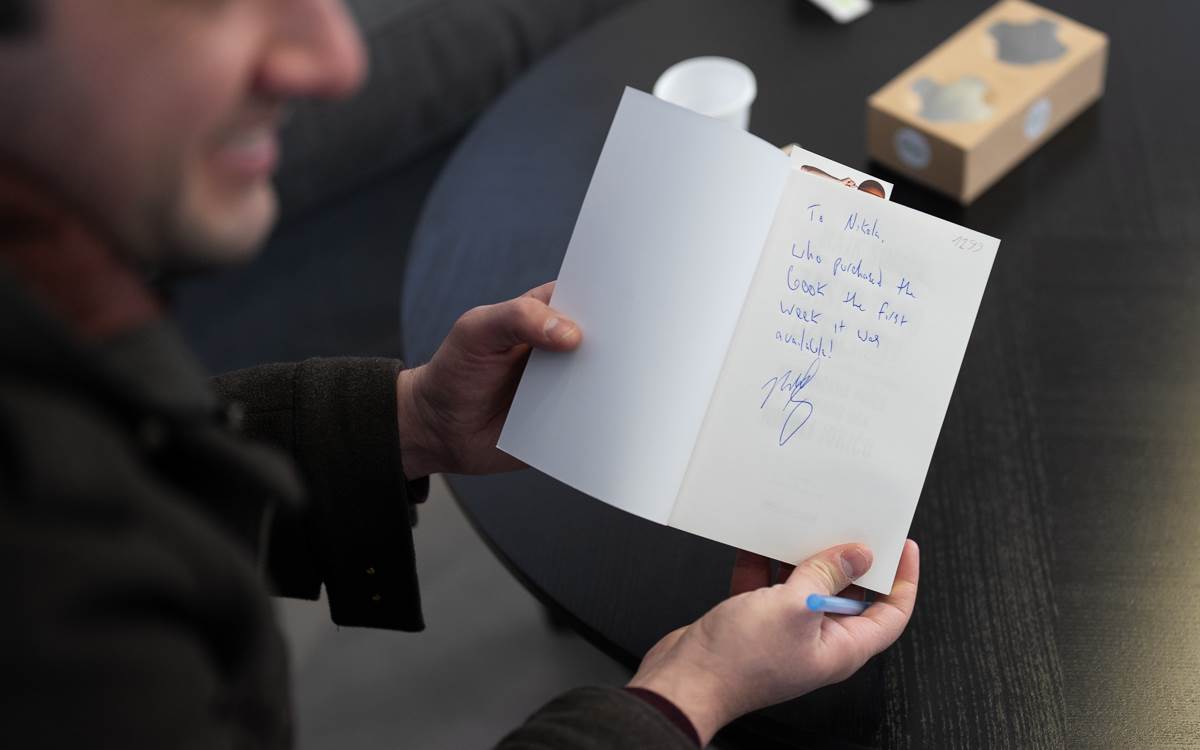 To Nikola,
1293
who purchased the
book the first
week it was
available!